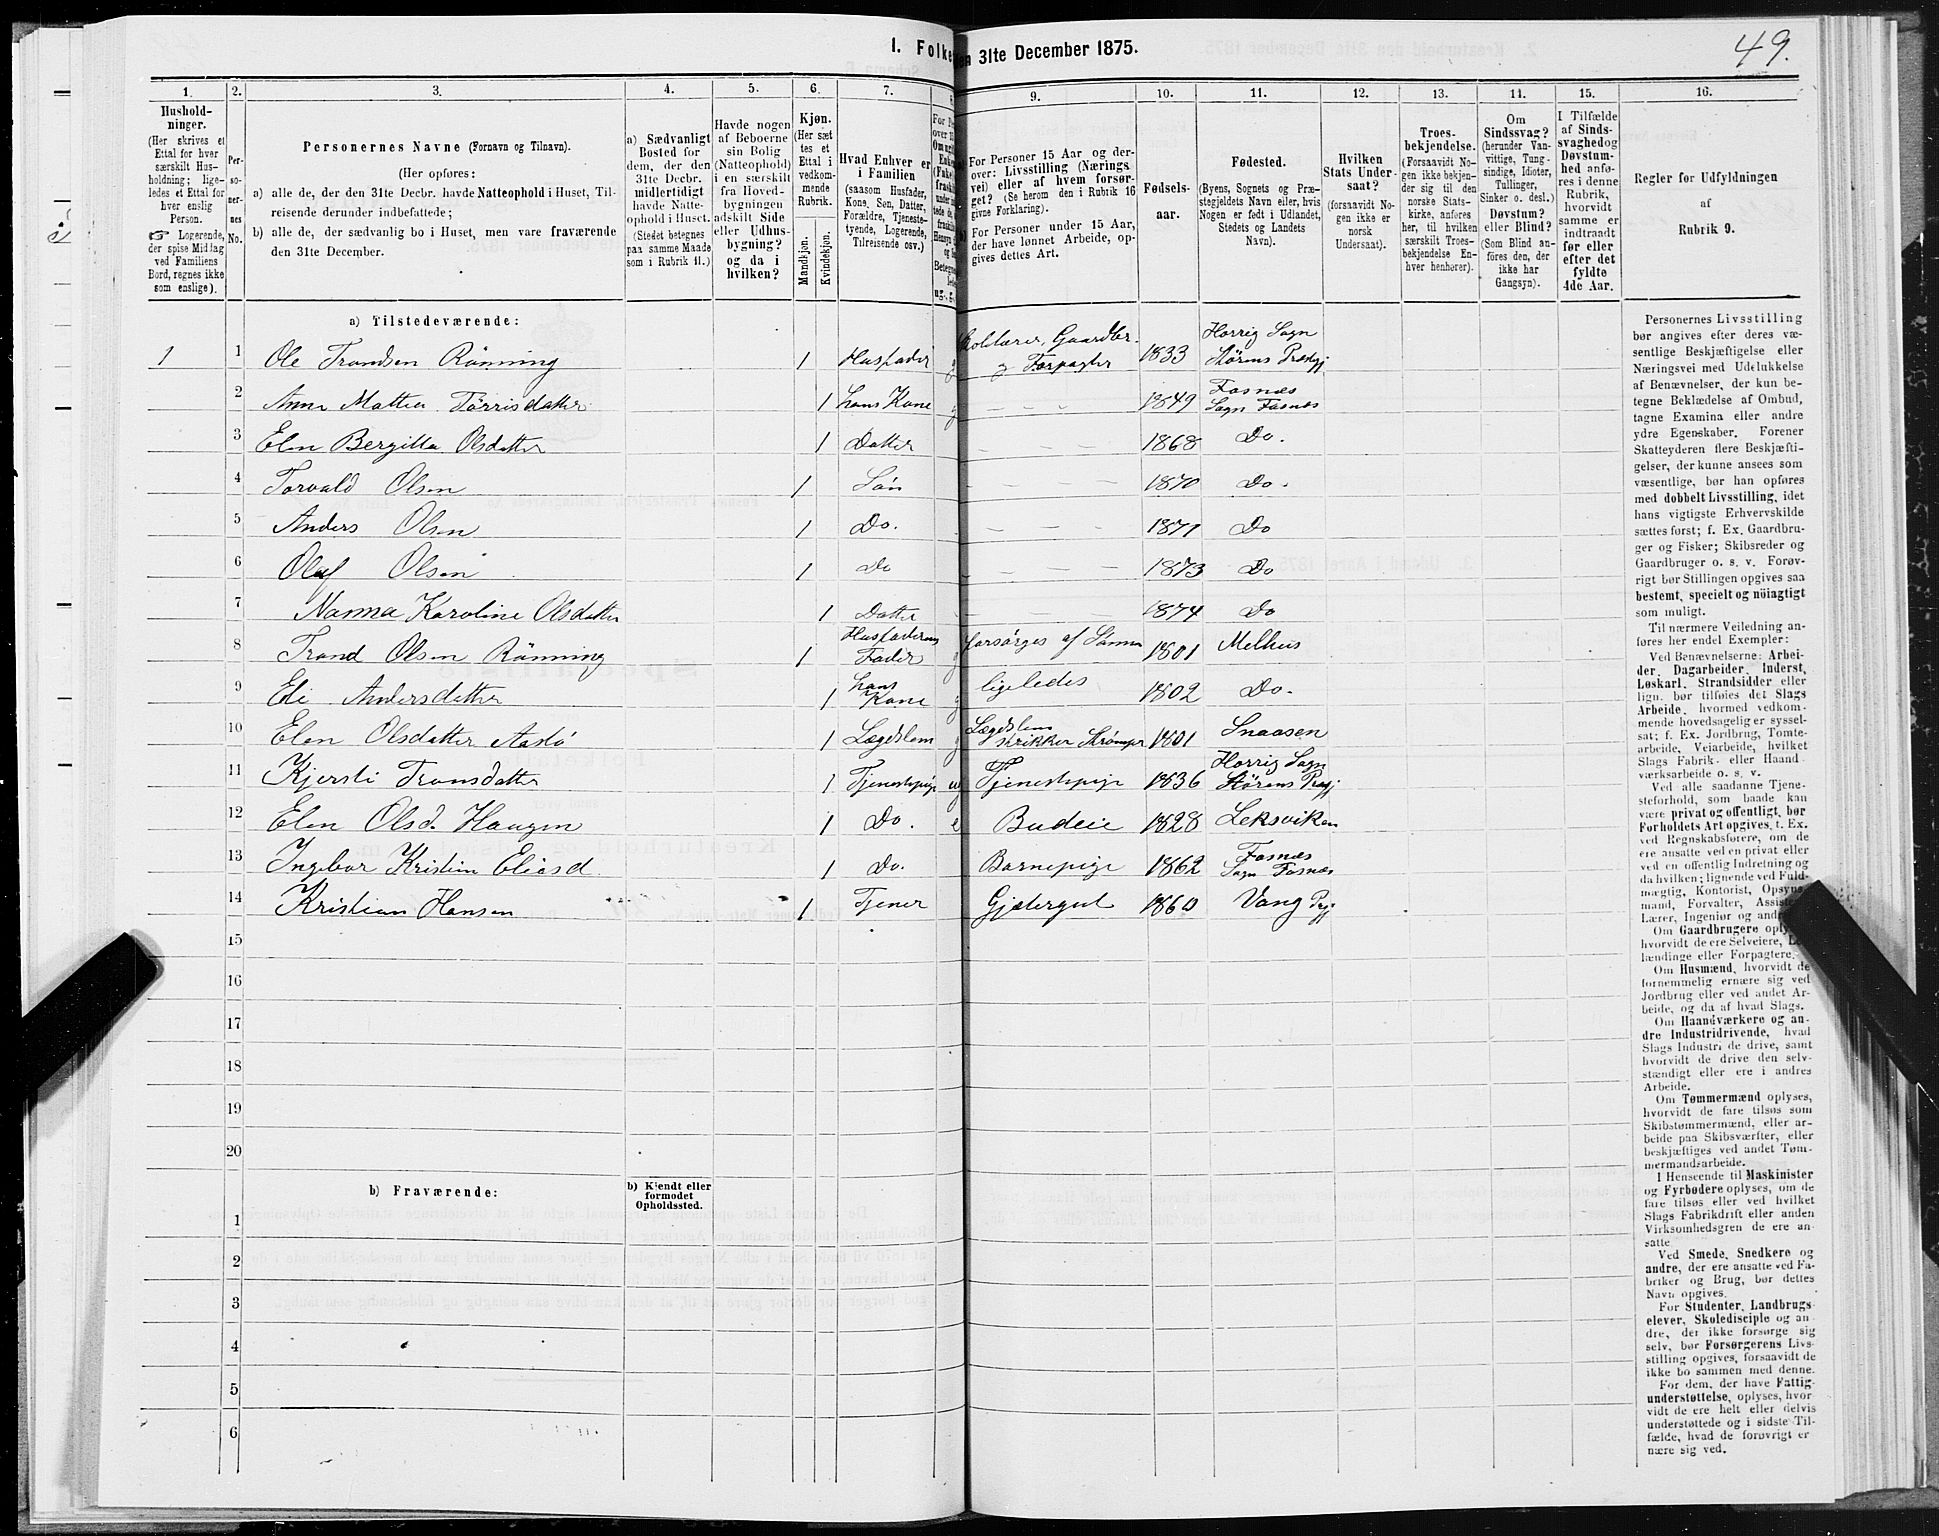 1. Folke en 31te December 1875.
49.
1. 2. 3. 4. 5. 6. 7. 9. 10. 11. 12. 13. 14. 15. 16.
Hushold-
ninger.
(Her skrives et
Ettal for hver
særskilt Hus-
holdning; lige-
ledes et Ettal for
hver enslig
Person.
☞ Logerende,
der spise Middag
ved Familiens
Bord, regnes ikke
som enslige).
Per-
so-
ner-
nes
No.
Personernes Navne (Fornavn og Tilnavn).
(Her opføres:
a) alle de, der den 31te Decbr. havde Natteophold i Huset, Til-
reisende derunder indbefattede;
b) alle de, der sædvanlig bo i Huset, men vare fraværende
den 31te December.
a) Sædvanligt
Bosted for
dem, der den
31te Decbr.
midlertidigt
havde Natte-
ophold i Huset.
(Stedet betegnes
paa samme Maade
som i Rubrik 11.)
Havde nogen
af Beboerne
sin Bolig
(Natteophold)
i en særskilt
fra Hoved-
bygningen
adskilt Side
eller Udhus-
bygning?
og da i
hvilken?
Kjøn.
(Her sæt-
tes et
Ettal i
vedkom-
mende
Rubrik.
Mandkjøn.
Kvindekjøn.
Hvad Enhver er
i Familien
(saasom Husfader,
Kone, Søn, Datter,
Forældre, Tjeneste-
tyende, Logerende,
Tilreisende osv.)
For Personer 15 Aar og der-
over: Livsstilling (Nærings
vei) eller af hvem forsør-
get? (Se herom den i Rubrik 16
givne Forklaring).
For Personer under 15 Aar,
der have lønnet Arbeide, op-
gives dettes Art.
Fødsels-
aar.
Fødested.
(Byens, Sognets og Præ-
stegjeldets Navn eller, hvis
Nogen er født i Udlandet,
Stedets og Landets
Navn).
Hvilken
Stats Under-
saat?
(forsaavidt No-
gen ikke er
norsk
Undersaat).
Troes-
bekjendelse.
(Forsaavidt No-
gen ikke bekjen-
der sig til den
norske Stats-
kirke, anføres
her, til hvilken
særskilt Troes-
bekjendelse En-
hver henhører).
Om
Sindssvag?
(herunder Van-
vittige, Tung-
sindige, Idioter,
Tullinger,
Sinker o. desl.)
Døvstum?
eller Blind?
(Som Blind an-
føres den, der
ikke har
Gangsyn).
I Tilfælde
af Sinds-
svaghedog
Døvstum-
hed anfø-
res i denne
Rubrik,
hvorvidt
samme er
indtraadt
før eller
efter det
fyldte
4de Aar.
Regler før Udfyldningen
af
Rubrik 9.
a) Tilstedeværende:
1 1 Ole Trondsen Rönning 1 Husfader Gaardbr. og Forpagter 1833 Horrig Sogn Störens Prestgj
2 Anne Mattea Törrisdatter 1 hans Kone 1849 Fosnæs Sogn Fosnæs
3 Elen Bergitta Olsdatter 1 Datter 1868 Do.
4 Torvald Olsen 1 Sön 1870 Do.
5 Anders Olsen 1 Do. 1871 Do
6 Olaf Olsen 1 Do 1873 Do
7 Nanna Karoline Olsdatter 1 Datter 1874 Do
8 Trond Olsen Rönning 1 Husfaderens Fader g forsörges af Sönnen 1801 Melhus
9 Eli Andersdatter 1 hans Kone g ligeledes 1802 Do.
10 Elen Olsdatter Aaslö 1 Lægdslem Lægdslem strikker Strömper 1801 Snaasen
11 Kjersti Tronsdatter 1 Tjenestepige ug Tjenestepige 1836 Horrig Sogn Störens Pregj
12 Elen Olsd. Haugen 1 Do. e Budeie 1828 Leksviken
13 Ingebor Kristine Eliasd 1 Do. Barnepige 1862 Fosnæs Sogn Fosnæs
14 Kristian Hansen 1 Tjener Gjætergut 1860 Vang Pregj
15
16
17
18
19
20
b) Fraværende:
b) Kjendt eller
formodet
Opholdssted.
1
2
3
4
5
6
Personernes Livsstilling
bør angives efter deres væ-
sentlige Beskjæftigelse eller
Næringsvei med Udelukkelse
af Benævnelser, der kun be-
tegne Beklædelse af Ombud,
tagne Examina eller andre
ydre Egenskaber. Forener
Skatteyderen flere Beskjæfti-
gelser, der kunne ansees som
væsentlige, bør han opføres
med dobbelt Livsstilling, idet
hans vigtigste Erhvervskilde
sættes først; f. Ex. Gaardbru-
ger og Fisker; Skibsreder og
Gaardbruger o. s. v. Forøv-
rigt bør Stillingen opgives saa
bestemt, specielt og nøiagtigt
som muligt.
Til nærmere Veiledning an-
føres her endel Exempler:
Ved Benævnelserne: Arbei-
der, Dagarbeider, Inderst,
Løskarl, Strandsidder eller
lign. bør tilføies det Slags
Arbeide, hvormed vedkom-
mende hovedsagelig er syssel-
sat; f. Ex. Jordbrug, Tomte-
arbeide, Veiarbeide, hvilket
Slags Fabrik- eller Haand
værksarbeide o. s. v.
Ved alle saadanne Tjene-
steforhold, som baade kan
være privat og offentligt, bør
Forholdets Art opgives, f. Ex.
ved Regnskabsførere, om de
ere ansatte ved en privat eller
ved en offentlig Indretning og
da hvilken; lignende ved Fuld-
mægtig, Kontorist, Opsyns-
mand, Forvalter, Assistent
Lærer, Ingeniør og andre.
Om Gaardbrugere oply
hvorvidt de ere Selveiere, Le
lændinge eller Forpagtere.
Om Husmænd, hvorvidt de
fornemmelig ernære sig ved
Jordbrug eller ved andet Ar-
beide, og da af hvad Slags.
Om Haandværkere og an-
dre Industridrivende, hvad
Slags Industri de drive, samt
hvorvidt de drive den selv-
stændigt eller ere i andres
Arbeide.
Om Tømmermænd oplyses,
hvorvidt de fare tilsøs som
Skibstømmermænd, eller ar-
beide paa Skibsværfter, eller
beskjæftiges ved andet Tøm-
mermandsarbeide.
I Henseende til Maskinister
og Fyrbødere oplyses, om de
fare tilsøs eller ved hvilket
Slags Fabrikdrift eller anden
Virksomhedsgren de ere an-
satte.
Ved Smede, Snedkere og
andre, der ere ansatte ved Fa-
briker og Brug, bør dettes
Navn opgives.
For Studenter, Landbrugs-
elever, Skoledisciple og an-
dre, der ikke forsørge sig
selv, bør Forsørgerens Livs-
stilling opgives, forsaavidt de
ikke bo sammen med denne.
For dem, der have Fattig-
understøttelse, oplyses, hvor
vidt de ere helt eller delvis
understøttede og i sidste Til-
fælde, hvad de forøvrigt er
nære sig ved.